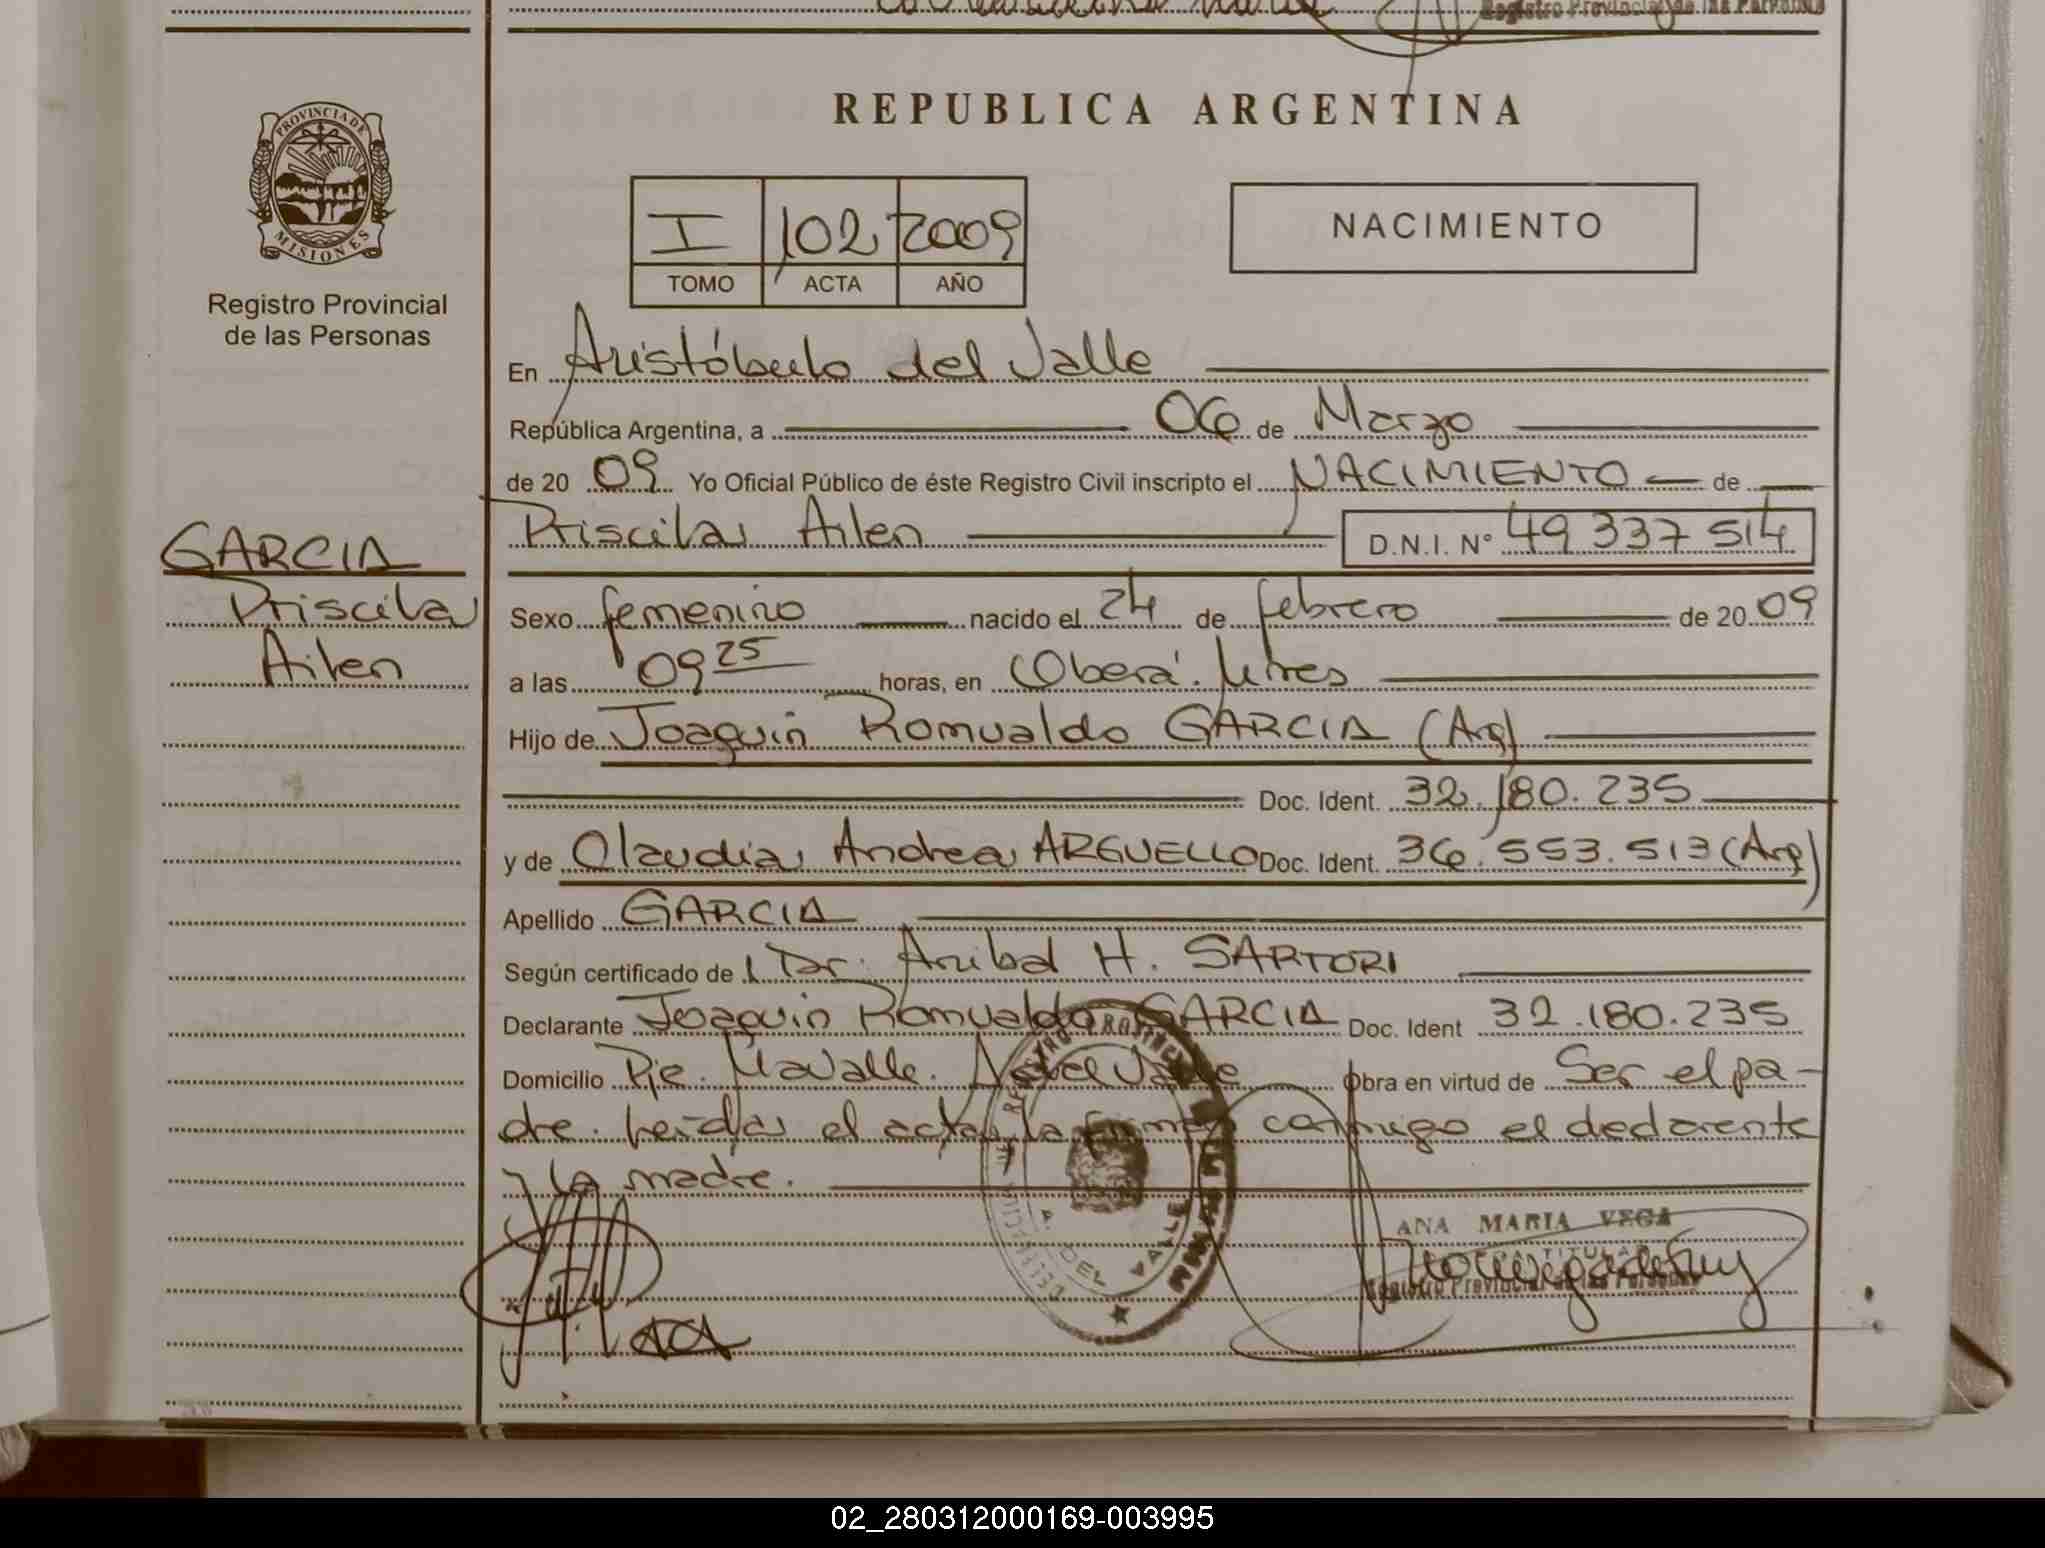 Registro Provincial de las Personas
PROVINCIA DE
MISIONES
Registro Provincial
de las Personas
REPUBLICA ARGENTINA
I 102 2009
TOMO ACTA AÑO
NACIMIENTO
En Aristóbulo del Valle
República Argentina, a 06 de Marzo
de 20 09 Yo Oficial Público de éste Registro Civil inscripto el NACIMIENTO de
Priscila Ailen D.N.I. N° 49 337 514
GARCIA
Priscila
Ailen
Sexo femenino nacido el 24 de febrero de 20 09
a las 09 25 horas, en Oberá. Mnes
Hijo de Joaquin Romualdo GARCIA (Arg)
Doc. Ident. 32.180.235
y de Claudia Andrea ARGUELLO Doc. Ident. 36.553.513 (Arg)
Apellido GARCIA
Según certificado de Dr. Anibal H. SARTORI
Declarante Joaquin Romualdo GARCIA Doc. Ident 32.180.235
Domicilio Pje. Mavalle. A del Valle Obra en virtud de Ser el pa-
dre. Leída el acta la firma conmigo el declarante
y la madre.
DEL VALLE
ANA MARIA VEGA
TITULAR
Registro Provincial de las Personas
02_280312000169-003995